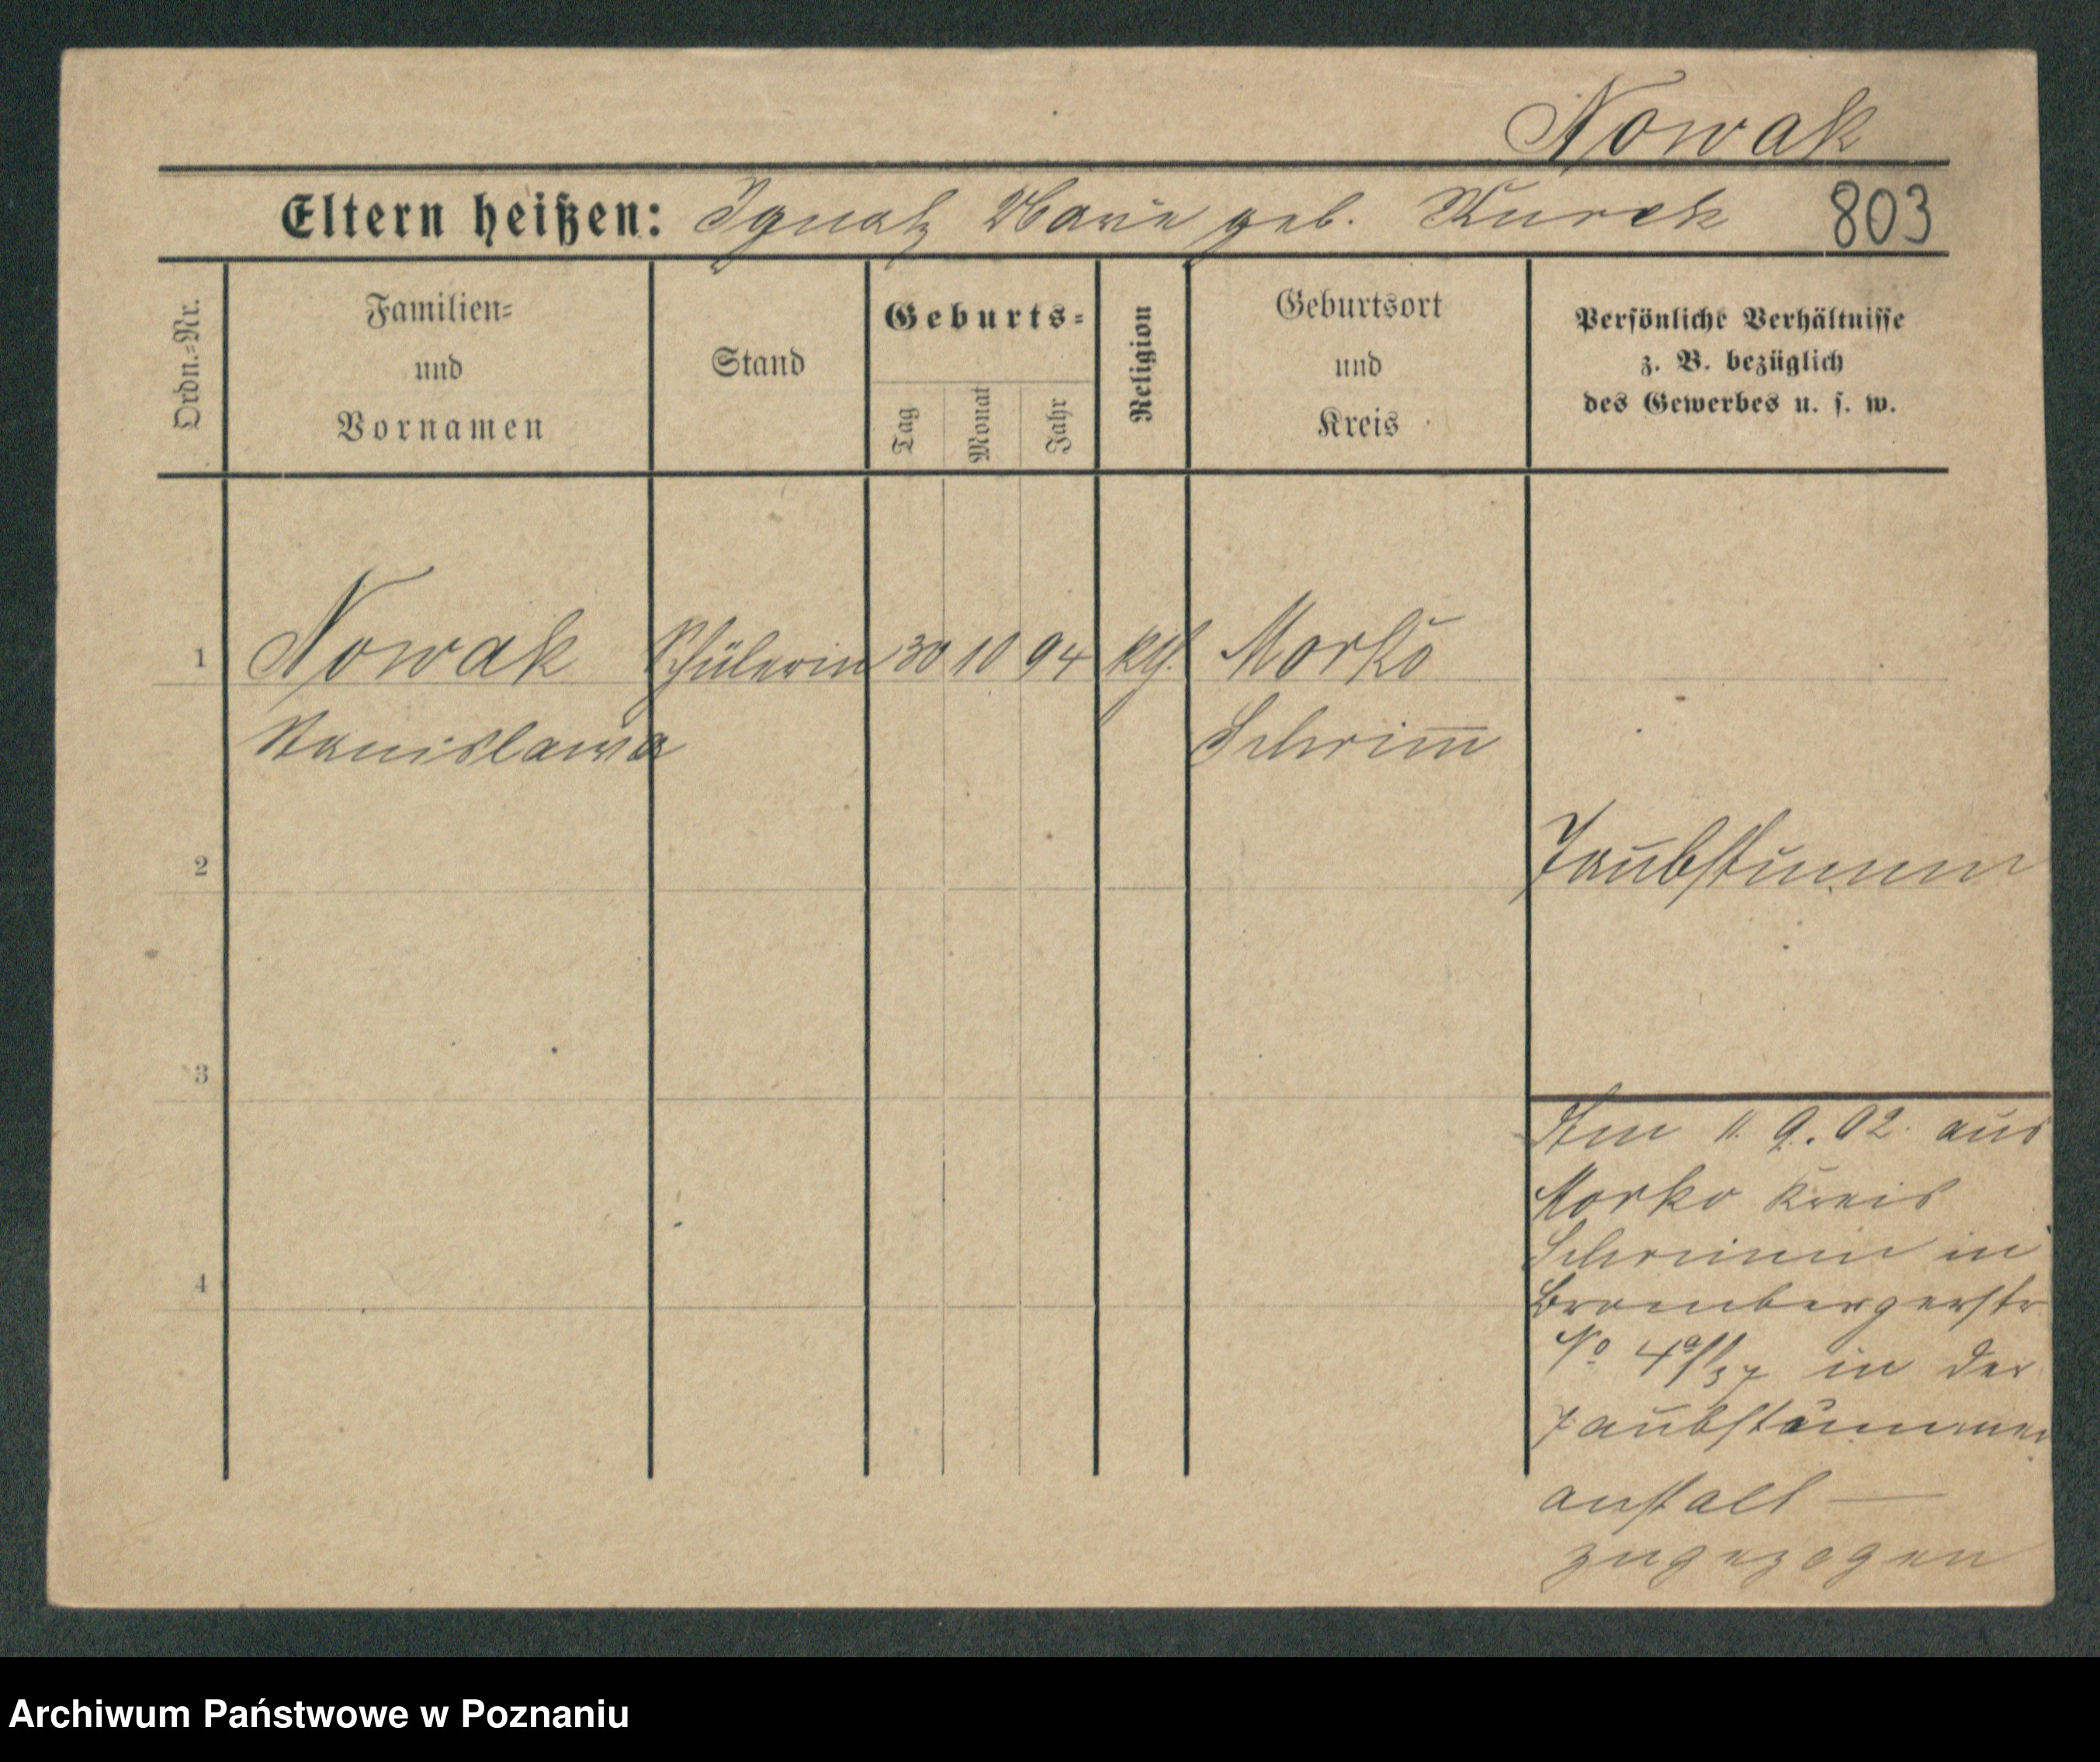 Nowak
Eltern heißen: Ignatz Marie geb. Kurek 803
Ordn.-Nr.
Familien-
und
Vornamen
Stand
Geburts-
Tag
Monat
Jahr
Religion
Geburtsort
und
Kreis
Persönliche Verhältnisse
z. B. bezüglich
des Gewerbes u. s. w.
1 Nowak Schülerin 30 10 94 kth. Morko
Stanislawa Schrim̅
2 Taubstumm
3
Am 11. 9. 02. aus
Morko Kreis
Schrimm in
4 Brombergerstr
No 4a/37 in der
Taubstummen
anstalt —
zugezogen
Archiwum Państwowe w Poznaniu